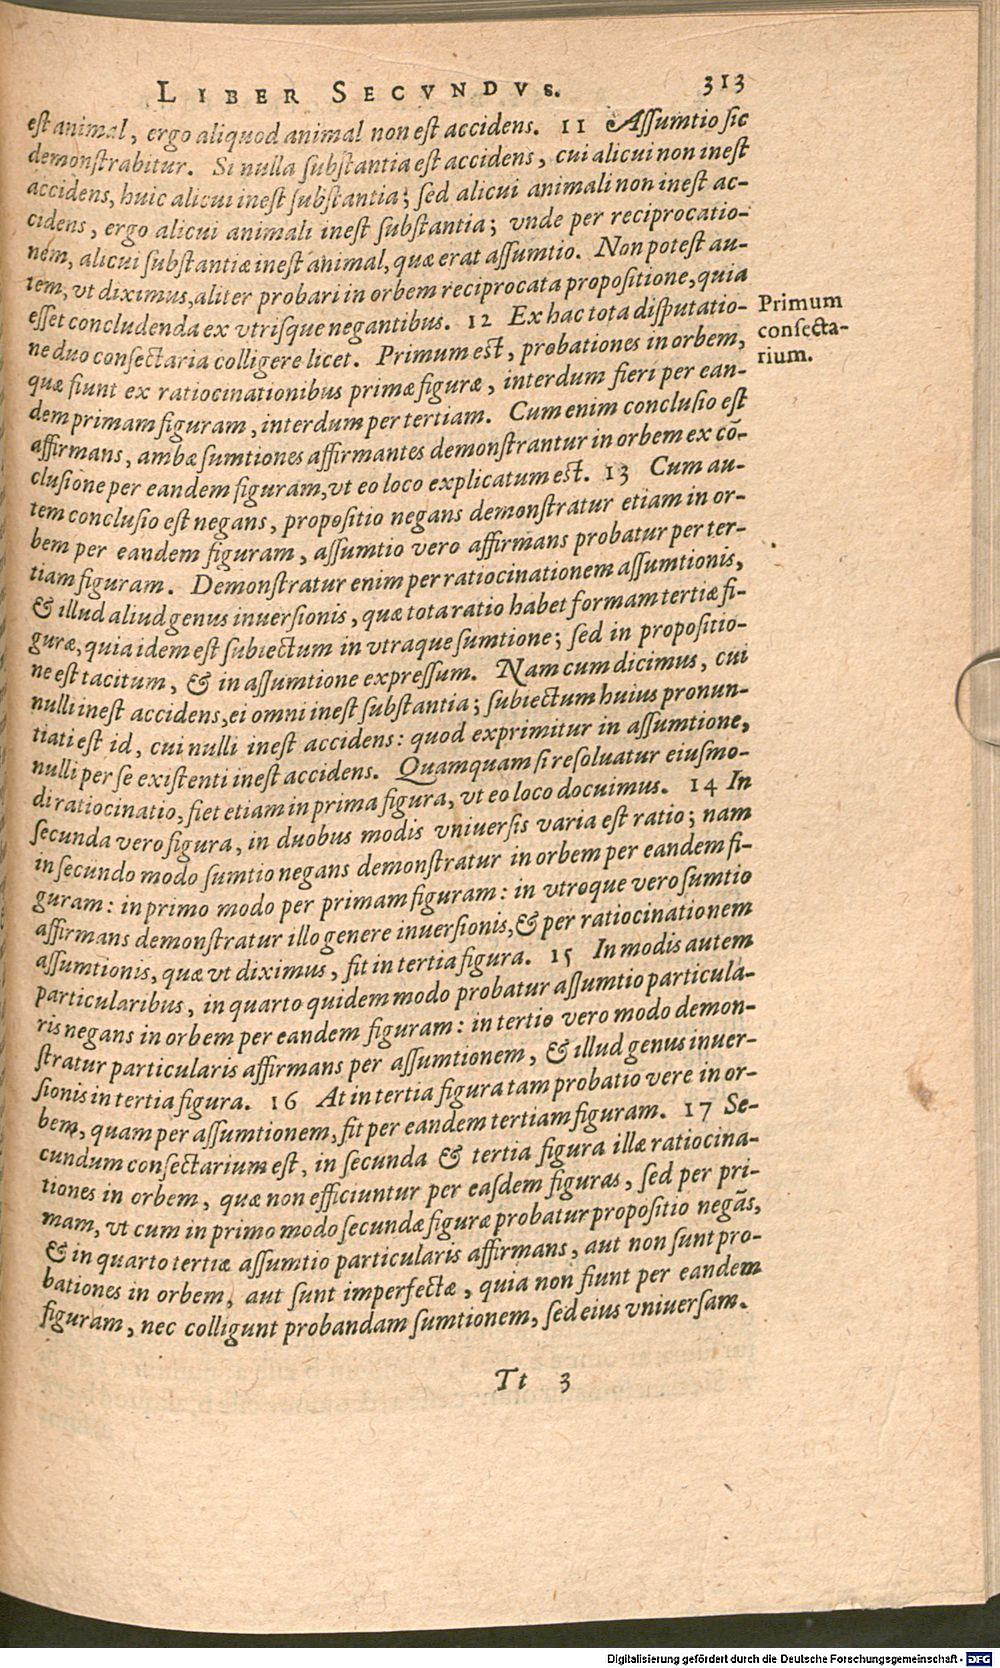 LIBER SECVNDVS. 313
est animal, ergo aliquod animal non est accidens. 11 Assumtio sic
demonstrabitur. Si nulla substantia est accidens, cui alicui non inest
accidens, huic alicui inest substantia; sed alicui animali non inest ac-
cidens, ergo alicui animali inest substantia; vnde per reciprocatio-
nem, alicui substantiæ inest animal, quæ erat assumtio. Non potest au-
tem, vt diximus, aliter probari in orbem reciprocata propositione, quia
esset concludenda ex vtrisque negantibus. 12 Ex hac tota disputatio-
ne duo consectaria colligere licet. Primum est, probationes in orbem,
quæ fiunt ex ratiocinationibus primæ figuræ, interdum fieri per ean-
dem primam figuram, interdum per tertiam. Cum enim conclusio est
affirmans, ambæ sumtiones affirmantes demonstrantur in orbem ex cō-
clusione per eandem figuram, vt eo loco explicatum est. 13 Cum au-
tem conclusio est negans, propositio negans demonstratur etiam in or-
bem per eandem figuram, assumtio vero affirmans probatur per ter-
tiam figuram. Demonstratur enim per ratiocinationem assumtionis,
& illud aliud genus inuersionis, quæ tota ratio habet formam tertiæ fi-
guræ, quia idem est subiectum in vtraque sumtione; sed in propositio-
ne est tacitum, & in assumtione expressum. Nam cum dicimus, cui
nulli inest accidens, ei omni inest substantia; subiectum huius pronun-
tiati est id, cui nulli inest accidens: quod exprimitur in assumtione,
nulli per se existenti inest accidens. Quamquam si resoluatur eiusmo-
di ratiocinatio, fiet etiam in prima figura, vt eo loco docuimus. 14 In
secunda vero figura, in duobus modis vniuersis varia est ratio; nam
in secundo modo sumtio negans demonstratur in orbem per eandem fi-
guram: in primo modo per primam figuram: in vtroque vero sumtio
affirmans demonstratur illo genere inuersionis, & per ratiocinationem
assumtionis, quæ vt diximus, fit in tertia figura. 15 In modis autem
particularibus, in quarto quidem modo probatur assumtio particula-
ris negans in orbem per eandem figuram: in tertio vero modo demon-
stratur particularis affirmans per assumtionem, & illud genus inuer-
sionis in tertia figura. 16 At in tertia figura tam probatio vere in or-
bem, quam per assumtionem, fit per eandem tertiam figuram. 17 Se-
cundum consectarium est, in secunda & tertia figura illæ ratiocina-
tiones in orbem, quæ non efficiuntur per easdem figuras, sed per pri-
mam, vt cum in primo modo secundæ figuræ probatur propositio negās,
& in quarto tertiæ assumtio particularis affirmans, aut non sunt pro-
bationes in orbem, aut sunt imperfectæ, quia non fiunt per eandem
figuram, nec colligunt probandam sumtionem, sed eius vniuersam.
Tt 3
Primum
consecta-
rium.
Digitalisierung gefördert durch die Deutsche Forschungsgemeinschaft - DFG